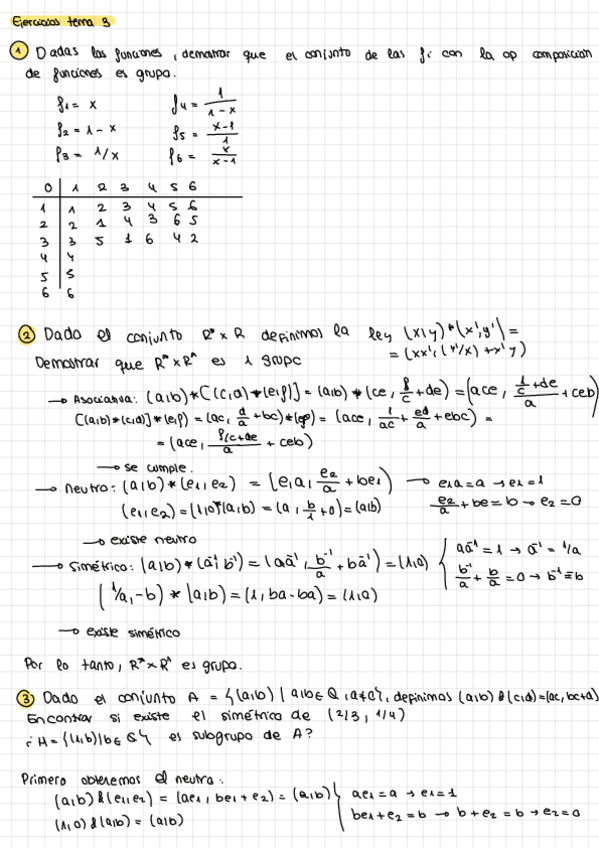 Ejercicios tema 3
1 Dadas las funciones, demostrar que el conjunto de las fi con la op composición
de funciones es grupo.
f1 = x f4 = 1/(1-x)
f2 = 1-x f5 = (x-1)/1
f3 = 1/x f6 = x/(x-1)
0 1 2 3 4 5 6
1 1 2 3 4 5 6
2 2 1 4 3 6 5
3 3 5 1 6 4 2
4 4
5 5
6 6
2 Dado el conjunto R* x R definimos la ley (x,y)*(x',y') =
= (xx', (y'/x) + x'y)
Demostrar que R* x R^ es 1 grupo
→ Asociativa: (a,b)*[(c,d)*(e,f)] = (a,b)*(ce, f/c + de) = (ace, (f/c + de)/a + ceb)
[(a,b)*(c,d)]*(e,f) = (ac, d/a + bc)*(e,f) = (ace, f/ac + ed/a + ebc) =
= (ace, (f/c + de)/a + ceb)
→ se cumple.
→ Neutro: (a,b)*(e1,e2) = (e,a, e2/a + be1) → e1a = a → e1 = 1
(e1,e2) = (1,0)*(a,b) = (a, b/1 + 0) = (a,b) e2/a + be = b → e2 = 0
→ existe neutro
→ Simétrico: (a,b)*(a⁻¹,b⁻¹) = (aa⁻¹, b⁻¹/a + ba⁻¹) = (1,0) { aa⁻¹ = 1 → a⁻¹ = 1/a
(1/a, -b)*(a,b) = (1, ba - ba) = (1,0) b⁻¹/a + b/a = 0 → b⁻¹ = -b
→ existe simétrico
Por lo tanto, R* x R^ es grupo.
3 Dado el conjunto A = {(a,b) | a,b ∈ Q, a≠0}, definimos (a,b) & (c,d) = (ac, bc+d)
Encontrar si existe el simétrico de (2/3, 1/4)
¿H = {(1,b) | b ∈ Q} es subgrupo de A?
Primero obtenemos el neutro:
(a,b) & (e1,e2) = (ae1, be1 + e2) = (a,b) { ae1 = a → e1 = 1
(1,0) & (a,b) = (a,b) be1 + e2 = b → b + e2 = b → e2 = 0